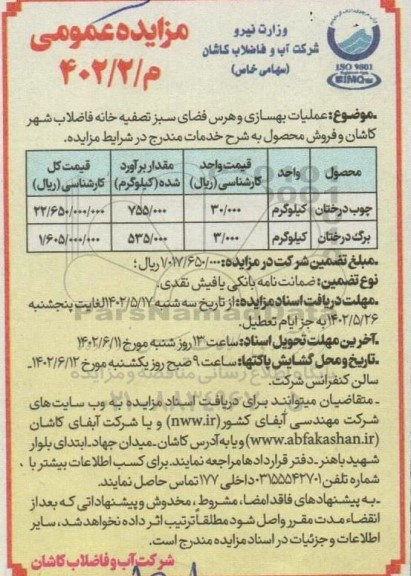 وزارت نیرو
شرکت آب و فاضلاب کاشان
(سهامی خاص)
مزایده عمومی
م/۴۰۲/۲
ISO 9001
IMQ
موضوع: عملیات بهسازی و هرس فضای سبز تصفیه خانه فاضلاب شهر
کاشان و فروش محصول به شرح خدمات مندرج در شرایط مزایده.
محصول واحد قیمت واحد کارشناسی (ریال) مقدار برآورد شده (کیلوگرم) قیمت کل کارشناسی (ریال)
چوب درختان کیلوگرم ۳۰/۰۰۰ ۷۵۵/۰۰۰ ۲۲/۶۵۰/۰۰۰/۰۰۰
برگ درختان کیلوگرم ۳/۰۰۰ ۵۳۵/۰۰۰ ۱/۶۰۵/۰۰۰/۰۰۰
ـ مبلغ تضمین شرکت در مزایده: ۱/۰۱۷/۶۵۰/۰۰۰ ریال؛
نوع تضمین: ضمانت نامه بانکی یا فیش نقدی.
ـ مهلت دریافت اسناد مزایده: از تاریخ سه شنبه ۱۴۰۲/۵/۱۷ لغایت پنجشنبه
۱۴۰۲/۵/۲۶ به جز ایام تعطیل.
ـ آخرین مهلت تحویل اسناد: ساعت ۱۳ روز شنبه مورخ ۱۴۰۲/۶/۱۱
ـ تاریخ و محل گشایش پاکتها: ساعت ۹ صبح روز یکشنبه مورخ ۱۴۰۲/۶/۱۲ـ
سالن کنفرانس شرکت.
ـ متقاضیان میتوانند برای دریافت اسناد مزایده به وب سایت های
شرکت مهندسی آبفای کشور (nww.ir) و یا شرکت آبفای کاشان
(www.abfakashan.ir) و یا به آدرس کاشان ـ میدان جهاد ـ ابتدای بلوار
شهید باهنر ـ دفتر قراردادها مراجعه نمایند. برای کسب اطلاعات بیشتر با
شماره تلفن ۰۳۱۵۵۵۴۲۷۰۱ داخلی ۱۷۷ تماس حاصل نمایند.
ـ به پیشنهادهای فاقد امضا، مشروط، مخدوش و پیشنهاداتی که بعد از
انقضاء مدت مقرر واصل شود مطلقاً ترتیب اثر داده نخواهد شد، سایر
اطلاعات و جزئیات در اسناد مزایده مندرج است.
شرکت آب و فاضلاب کاشان
ParsNamadData